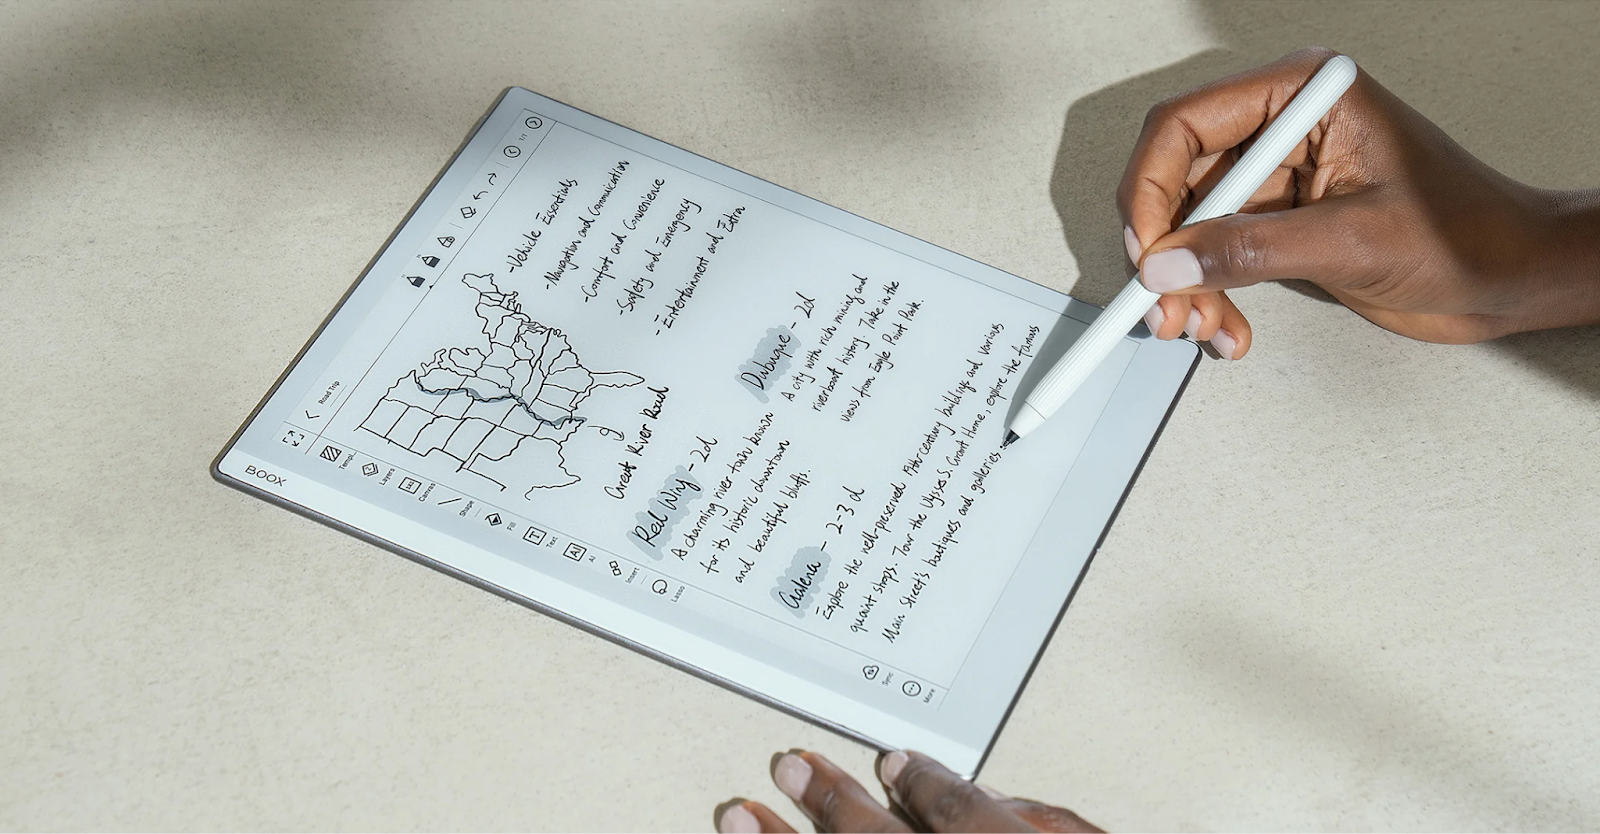 BOOX
Road Trip
1/1
Templ.
Layers
Canvas
Shape
Fill
Text
AI
AI
Insert
Lasso
Sync
More
Great River Road
-Vehicle Essentials
-Navigation and Communication
-Comfort and Convenience
-Safety and Emergency
-Entertainment and Extra
Red Wing - 2d
A charming river town known
for its historic downtown
and beautiful bluffs.
Dubuque - 2d
A city with rich mining and
riverboat history. Take in the
views from Eagle Point Park.
Galena - 2-3 d
Explore the well-preserved 19th-century buildings and various
quaint shops. Tour the Ulysses S. Grant Home, explore the famous
Main Street's boutiques and galleries